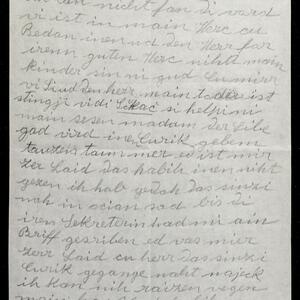 nicht fan di vard
ist in main Herc cu
Bedan inen ud den Herr far
irenn guten Herc nihtt main
kinder sin ni gud Cu mirr
vi Siud den herr main toder ist
stingji vidi Sekač si helpi ni
main sesen madam der libe
gad vird inen Curik gebem
tauzent taum mer ed ist mir
zer Laid das habik inen niht
gezen ich hab gedah das sinzi
noh in ocian sod bis di
iren Sekreterin had mi ain
Briff gesriben ed vas mir
Zerr Laid cu herr das sinzi
Curik gegange naht najeck
ich kan nih raizen vegen
main